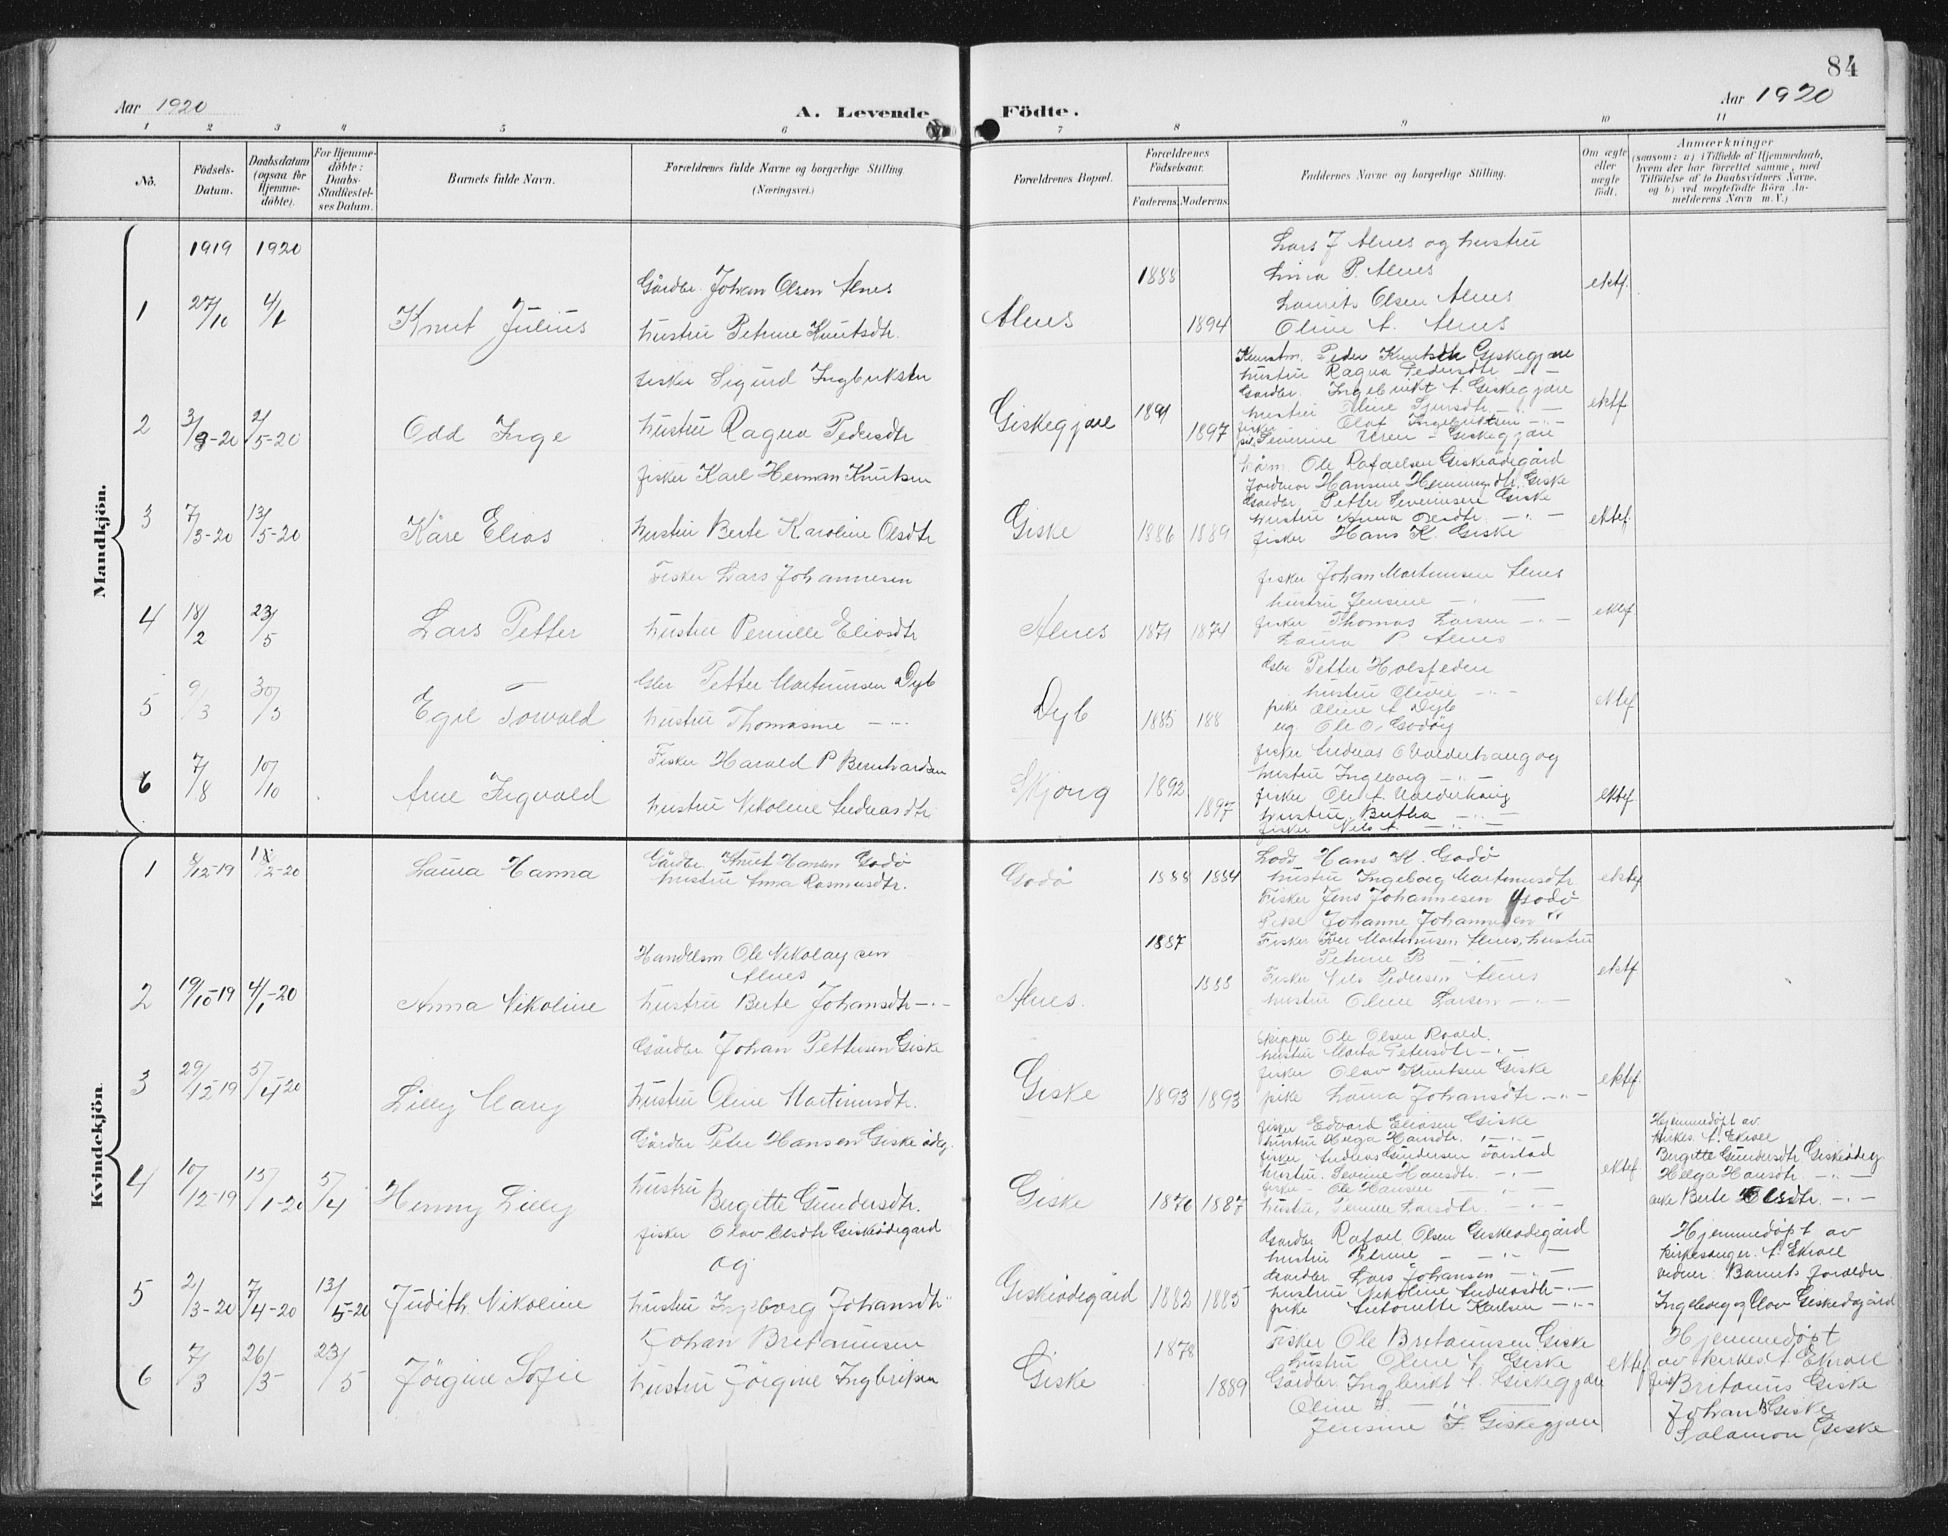 84
Aar 1920
A. Levende Födte.
Aar 1920
1 2 3 4 5 6 7 8 9 10 11
No.
Födsels-Datum.
Daabsdatum (ogsaa for Hjemme-døbte).
For Hjemme-døbte: Daabs-Stadfæstel-ses Datum.
Barnets fulde Navn.
Forældrenes fulde Navne og borgerlige Stilling (Næringsvei.)
Forældrenes Bopæl.
Forældrenes Födselsaar.
Faderens. Moderens.
Faddernes Navne og borgerlige Stilling.
Om ægte eller uægte født.
Anmærkninger
(saasom: a) i Tilfælde af Hjemmedaab, hvem der har forrettet samme, med Tilføielse af to Daabsvidners Navne, og b) ved uægtefødte Börn An-melderens Navn m. V.)
Mandkjön.
1919 1920
1 27/10 4/1 Knut Julius
Gårdbr. Johan Olsen Alnes
hustru Petrine Knutsdtr.
Alnes 1888 1894
Lars J Alnes og hustru
Lina P. Alnes
Laurits Olsen Alnes
Oline A. Alnes
ektf.
2 3/3-20 2/5-20 Odd Inge
fisker Sigurd Ingbriktsen
hustru Ragna Pedersdtr
Giskegjære 1891 1897
Peder Knutsen Giskegjære
hustru Ragna Pedersdtr -"-
Gardbr. Ingebrikt A. Giskegjære
hustru Oline Sjursdtr -"-
fisker Olaf Ingebriktsen -"-
pi. Severine Uren - Giskegjære
ektf
3 7/3-20 13/5-20 Kåre Elias
fisker Karl Herman Knutsen
hustru Berte Karoline Olsdtr
Giske 1886 1889
Ole Rafaelsen Giskeødegård
Jordmor Hansine Hennings dtr. Giske
Gardbr. Petter Severinsen Giske
hustru Anna Olsdtr. -"-
fisker Hans K. Giske
ektef.
4 18/2 23/5 Lars Petter
Fisker Lars Johannesen
hustru Pernille Eliasdtr
Alnes 1871 1874
fisker Johan Martinusen Alnes
hustru Jensine -"-
fisker Thomas Larsen -"-
Laura P. Alnes
ektef.
5 9/3 30/5 Egil Torvald
Gbr Petter Martinusen Dyb
hustru Thomasine -"-
Dyb 1885 188
Gbr Petter Holsfeden
hustru Olivie -"-
pike Oline A. Dyb
ug. Ole O. Godöy
ektef.
6 7/8 10/10 Arne Ingvald
Fisker Harald P Bernhardsen
hustru Nikoline Andreasdtr
Skjong 1892 1897
fisker Andreas O Valderhaug og
hustru Ingeborg -"-
fisker Ole A. Valderhaug
hustru, Bertha -"-
fisker Nils A. -"-
ektef.
Kvindekjön.
1 8/12-19 1/2-20 Laura Hanna
Gårdbr. Knut Hansen Godø
hustru Anna Rasmusdtr.
Godø 1888 1884
Lods Hans K. Godø
hustru Ingeborg Martinusdtr
Fisker Jens Johannesen Godø
Pike Johanne Johannesen "
ektef
2 19/10-19 4/1-20 Anna Nikoline
Handelsm Ole Nikolaysen
Alnes
hustru Berte Johansdtr -"-
Alnes. 1887 1888
Fisker Iver Martinusen Alnes, hustru
Petrine B -"-
Fisker Nils Pedersen Alnes
hustru Oline Larsen -"-
ektf
3 29/12-19 5/4-20 Lilly Mary
Gårdbr. Johan Pettersen Giske
hustru Oline Martinusdtr.
Giske 1893 1893
skipper Ole Olsen Roald.
hustru Marta Petersdtr -"-
fisker Olav Knutsen Giske
pike Laura Johansdtr. -"-
ektef.
4 10/12-19 15/1-20 5/4 Henny Lilly
Gårdbr Peter Hansen Giskeødeg.
hustru Birgitte Gundersdtr.
Giske 1876 1887
fisker Edvard Eliasen Giske
hustru Helga Hansdtr. -"-
fisker Andreas Gundersen
hustru. Severine Hansdtr. -"-
fisker - Ole Hansen
hustru, Pernille Larsdtr. -"-
ektef
Hjemmedøpt av
kirkes. A. Ekroll
Birgitte Gundersdtr Giskeødeg
Helga Hansdtr. -"-
Berte Olsdtr. -"-
5 2/3-20 7/4-20 13/5-20 Judith Nikoline
fisker Olav Olsdtr Giskeødegard
og
hustru Ingeborg Johansdtr
Giskeødegård 1882 1885
Gardbr. Rafael Olsen Giskeødegård
hustru Petrine -"-
Gardbr. Lars Johansen -"-
hustru Nikoline Andreasdtr -"-
pike Antonette Karlsen -"-
Hjemmedøpt av
kirkesanger. A. Ekroll
vidner: Barnets foreldre
Ingeborg og Olav Giskeødegård
6 7/3 26/3 23/5 Jörgine Sofie
Johan Britanusen
hustru Jörgine Ingbriksen
Giske 1878 1889
Fisker Ole Britanusen Giske
hustru Oline A. Giske
Gårdbr. Ingbrikt A. Giskegjære
Oline S. -"-
Jensine I. Giskegjære
ektef
Hjemmedøpt
av kirkes. A Ekroll
Britanus Giske
Johan B Giske
Salamon Giske